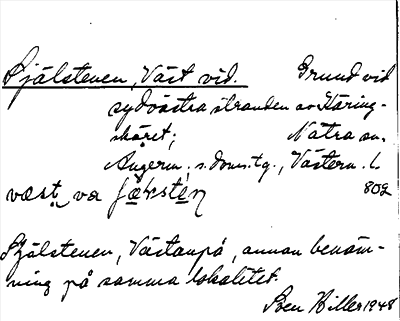 Själstenen, Väst vid. Grund vid
sydvästra stranden av Häring-
skäret; Nätra sn.
Ångerm. s. doms.tg., Västern. l.
väst va 802
Själstenen, Västanpå, annan benäm-
ning på samma lokalitet.
Sven Hiller 1948